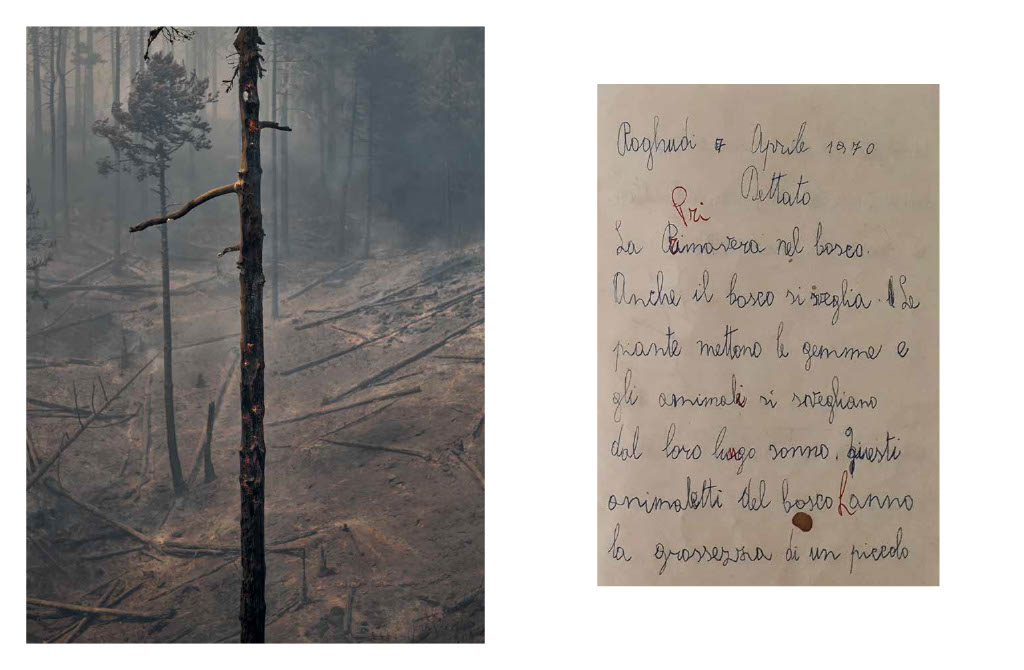 Roghudi 7 Aprile 1970
Dettato
Pri
La Primavera nel bosco.
Anche il bosco si sveglia. Le
piante mettono le gemme e
gli animali si svegliano
dal loro lungo sonno. Questi
animaletti del bosco hanno
la grossezza di un piccolo